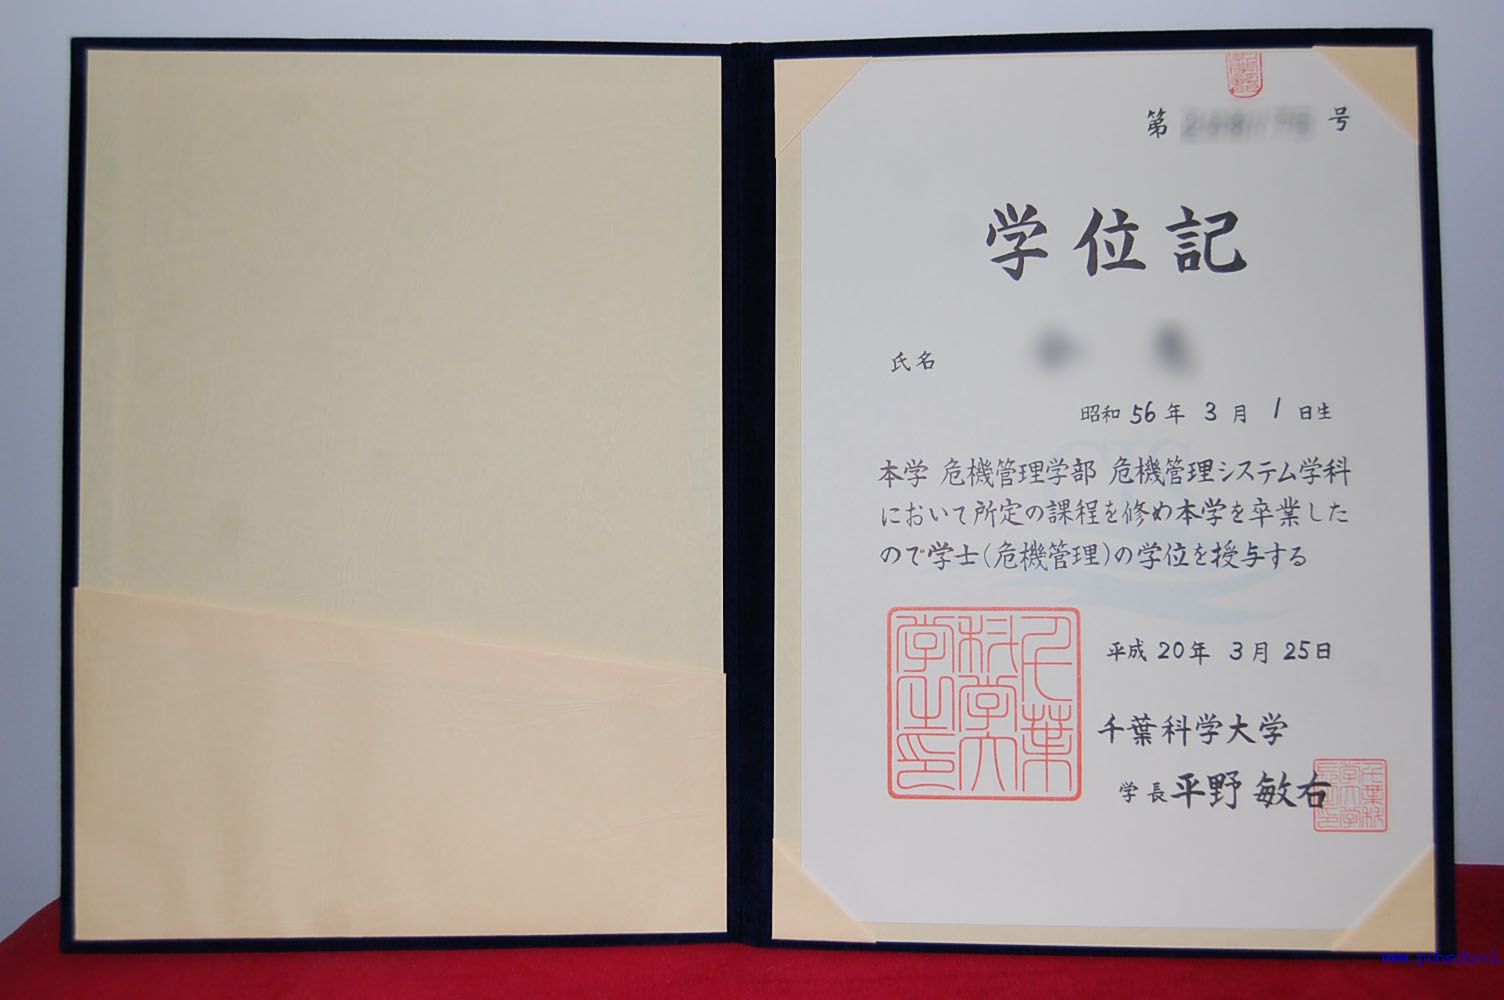 第 号
学位記
氏名
昭和 56 年 3 月 1 日生
本学 危機管理学部 危機管理システム学科
において所定の課程を修め本学を卒業した
ので学士(危機管理)の学位を授与する
平成 20 年 3 月 25 日
千葉科学大学
学長 平野 敏右
千葉科学大学之印